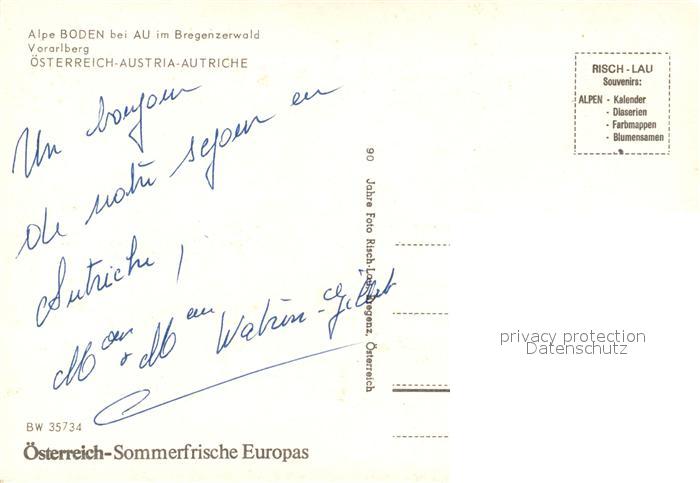 Alpe BODEN bei AU im Bregenzerwald
Vorarlberg
ÖSTERREICH-AUSTRIA-AUTRICHE
RISCH-LAU
Souvenirs:
ALPEN - Kalender
- Diaserien
- Farbmappen
- Blumensamen
Un bonjour
de notre sejour en
Autriche,
90 Jahre Foto Risch-Lau, Bregenz, Österreich
privacy protection
Datenschutz
BW 35734
Österreich-Sommerfrische Europas